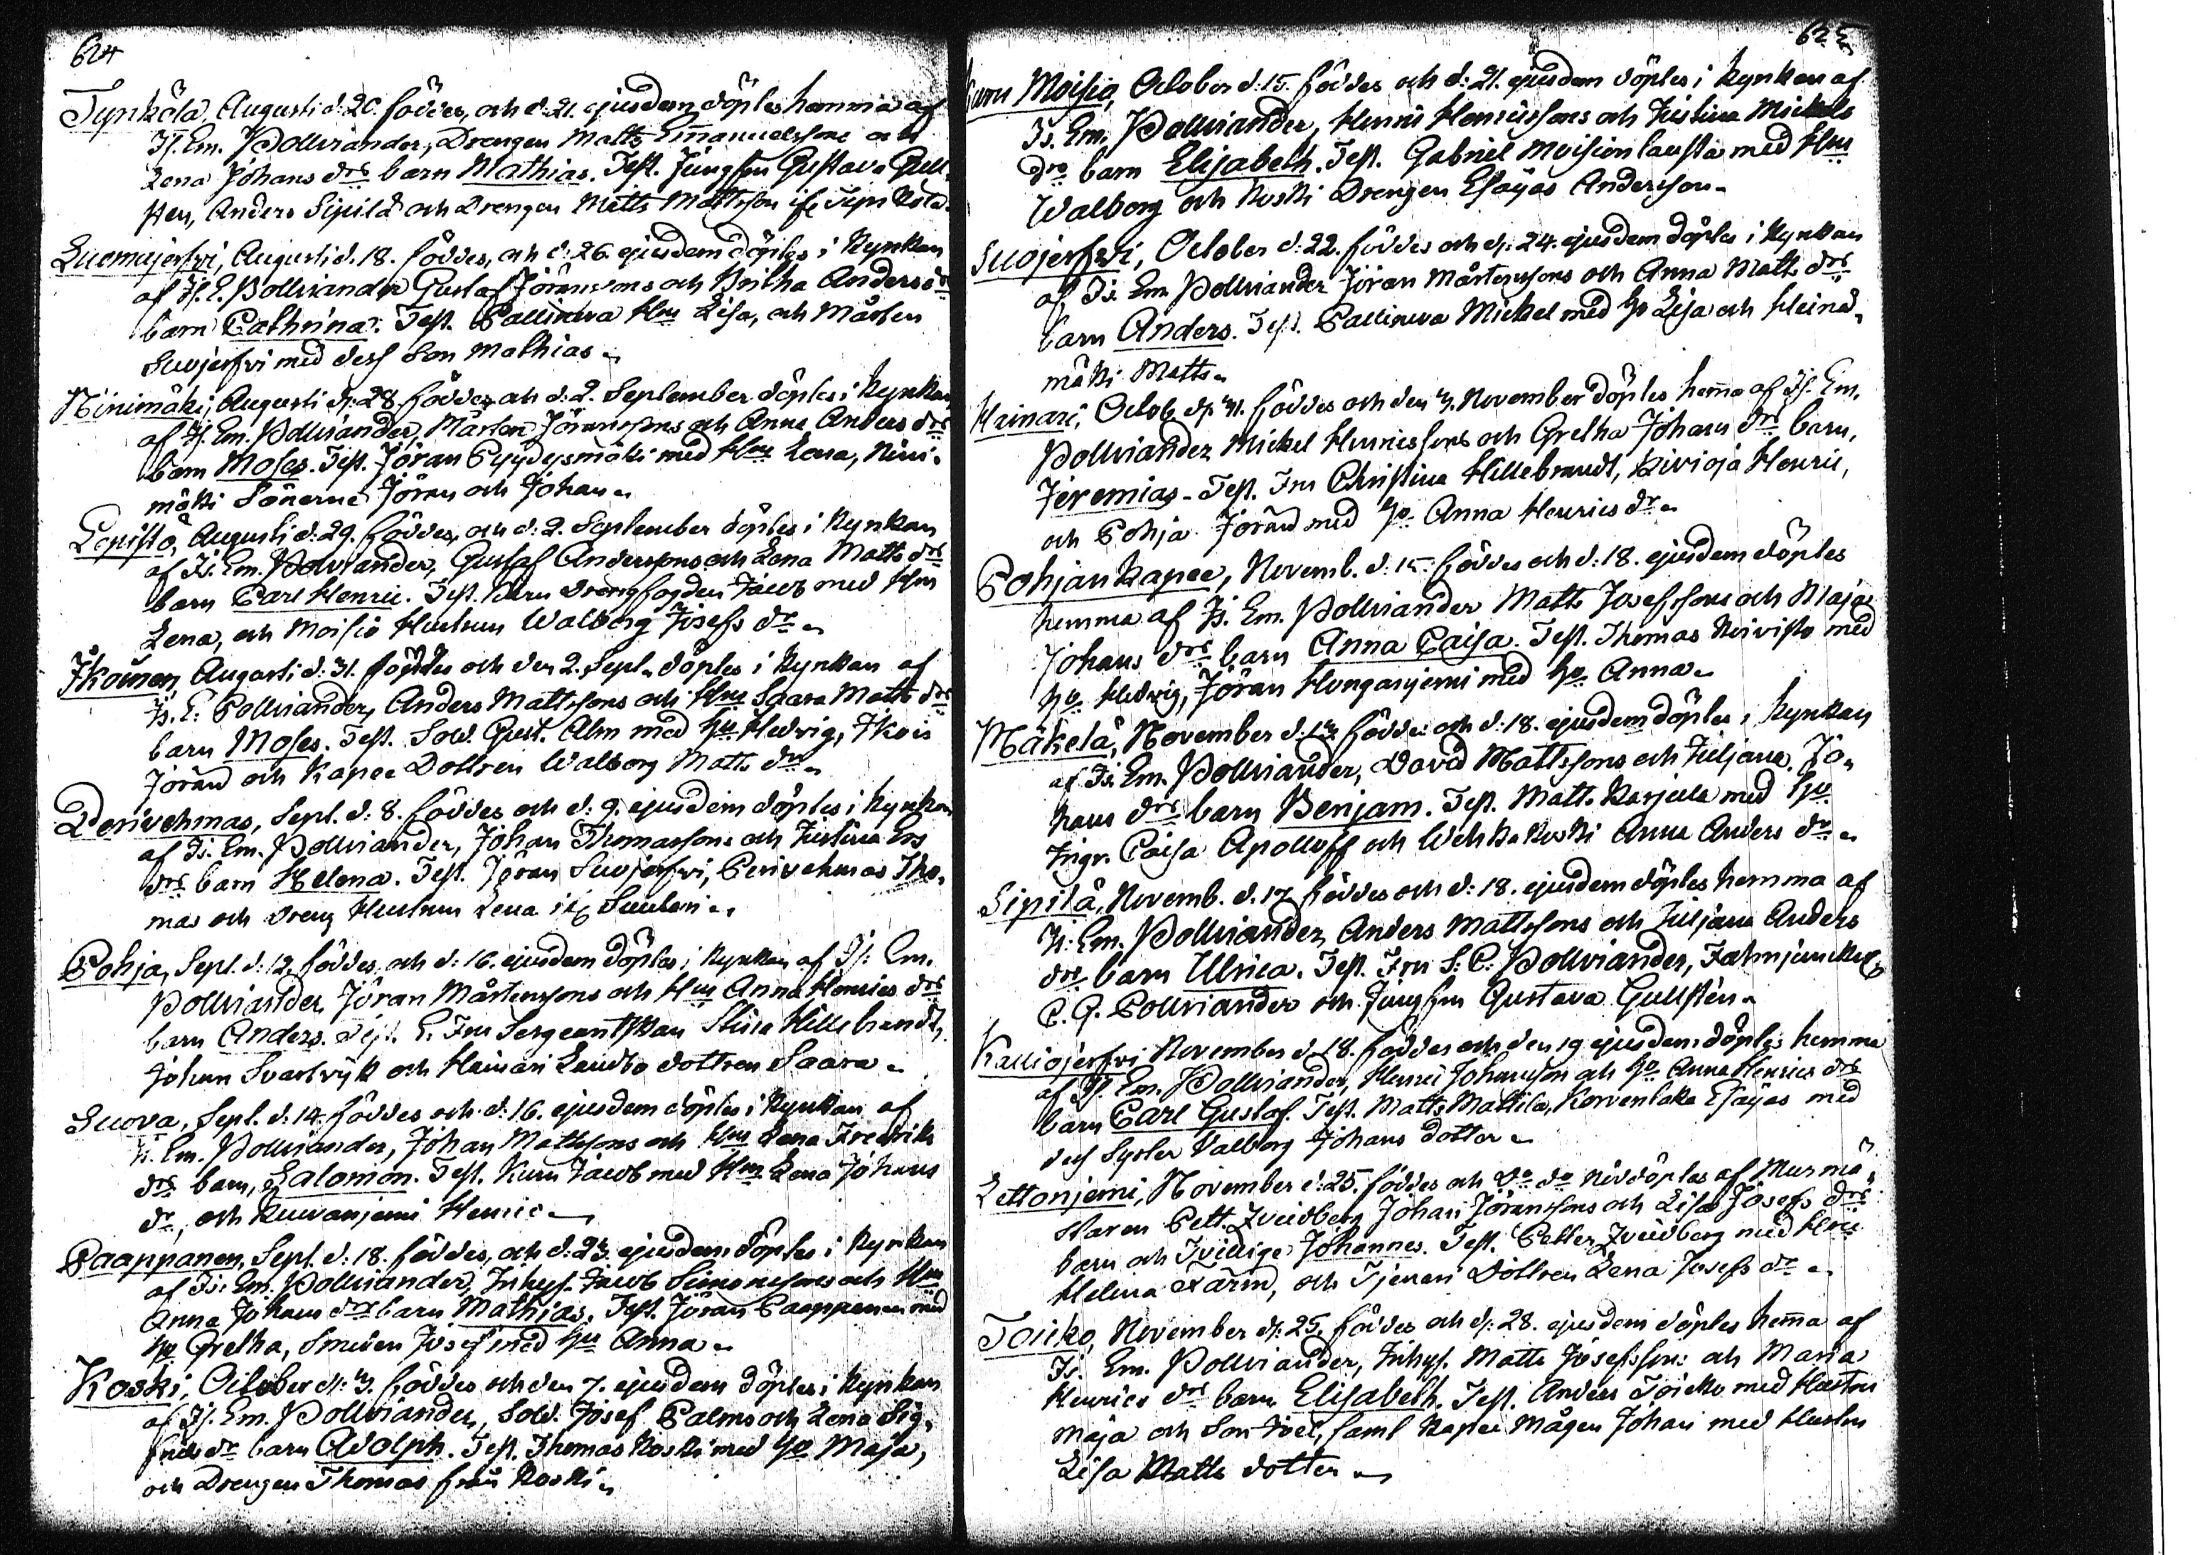 624
Tynkölä, Augusti d: 20. föddes, och d: 21. ejusdem döptes hemma af
Is. Em. Pollviander, Drengen Matts Emanuelssons och
Lena Johans drs barn Mathias. Test. Jungfru Gustava Gull
sten, Anders Sipilä och Drengen Matts Mattsson
Luomajerfvi, Augusti d. 18. föddes, och d: 26. ejusdem döptes i Kyrkan
af Is. E. Pollviander Gustaf Jöranssons och Britha Anders drs
barn Cathrina. Test. Pallineva Hu Lisa, och Mårten
Suojerfvi med dess Son Mathias
Niinimäki, Augusti d: 28. föddes och d: 2. September döptes i Kyrkan
af Is. Em. Pollviander, Mårten Jöranssons och Anna Anders drs
barn Moses. Test. Jöran Pyydysmäki med Hu Lena, Nini-
mäki Sönerne Jöran och Johan
Lepistö, Augusti d: 29. föddes, och d: 2. September döptes i Kyrkan
af Is. Em. Pollviander, Gustaf Anderssons och Lena Matts drs
barn Carl Henric. Test. drengfogden Jacob med Hu
Lena, och Moisio Hustrun Walborg Josefs dr
Ikoinen Augusti d: 31. föddes och den 2. Sept. döptes i Kyrkan af
Is. E. Pollviander, Anders Mattssons och Hu Saara Matts drs
barn Moses. Test. Sold. Gust. Alm med Hu Hedvig, Ikois
Jöran och Kapee Dottren Walborg Matts dr
Perivehmas, Sept. d: 8. föddes och d: 9. ejusdem döptes i Kyrkan
af Is. Em. Pollviander, Johan Thomassons och Justina Ers
drs barn Helena. Test. Jöran Suojerfvi, Perivehmas Tho-
mas och dreng Hustrun Lena
Pohja, Sept. d: 12. föddes och d: 16. ejusdem döptes i Kyrkan af Is. Em.
Pollviander, Jöran Mårtenssons och Hu Anna Henrics drs
barn Anders. Test. Fru Sergeantskan Stina Hillebrandt,
Johan Svartvijk och Heinäri Landbo dottren Saara
Luova, Sept. d: 14. föddes och d: 16. ejusdem döptes i Kyrkan af
Is. Em. Pollviander, Johan Mattssons och Hu Lena Fredrik
drs barn, Salomon. Test. Kuru Jacob med Hu Lena Johans
dr, och Kuivanjemi Henric
Paappanen, Sept. d: 18. föddes, och d: 23. ejusdem döptes i Kyrkan
af Is. Em. Pollviander, Inhys. Jacob Simonssons och Hu
Anna Johans drs barn Mathias. Test. Jöran Paappanen med
Hu Gretha, Smeden Josef med Hu Anna
Koski, October d: 3. föddes och den 7. ejusdem döptes i Kyrkan
af Is. Em. Pollviander, Sold. Josef Palms och Lena Sig-
frids dr barn Adolph. Test. Thomas Koski med Hu Maja,
och Drengen Thomas från Koski
625
Moisio, October d: 15. föddes och d: 21. ejusdem döptes i Kyrkan af
Is. Em. Pollviander, Henric Henricssons och Justina Mickels
drs barn Elisabeth. Test. Gabriel Moisionlausta med Hu
Walborg och Koski Drengen Esayas Andersson
Suojerfvi, October d: 22. föddes och d: 24. ejusdem döptes i Kyrkan
af Is. Em. Pollviander Jöran Mårtenssons och Anna Matts drs
barn Anders. Test. Pallineva Mickel med Hu Lisa och Heinä-
mäki Matts
Heinäri, Octob. d: 31. föddes och den 3. November döptes hema af Is. Em.
Pollviander Mickel Henricssons och Gretha Johans drs barn,
Jeremias. Test. Fru Christina Hillebrandt, Kivioja Henric,
och Pohja Jöran med Hu Anna Henrics dr
Pohjankapee, Novemb. d: 15. föddes och d: 18. ejusdem döptes
hemma af Is. Em. Pollviander Matts Josefssons och Maja
Johans drs barn Anna Caisa. Test. Thomas Koivisto med
Hu Hedvig, Jöran Hongasjemi med Hu Anna
Mäkelä, November d: 13. föddes och d: 18. ejusdem döptes i Kyrkan
af Is. Em. Pollviander, David Mattssons och Juljana Jo-
hans drs barn Benjam. Test. Matts Karjula med Hu
Ingr. Caisa Apolloff och Wehkakoski Anna Anders dr
Sipilä, Novemb. d. 17. föddes och d: 18. ejusdem döptes hemma af
Is. Em. Pollviander, Anders Mattssons och Juljana Anders
drs barn Ulrica. Test. Fru S: C: Pollviander, Fahnjunckar
C. G. Pollviander och Jungfru Gustava Gullstén
Kalliojerfvi November d. 18. föddes och den 19 ejusdem döptes hemma
af Is. Em. Pollviander, Henric Johansson och Hu Anna Henrics drs
barn Carl Gustaf. Test. Matts Mattila, Korvenlaka Esayas med
dess Syster Valborg Johans dotter
Lettonjemi, November d: 25. föddes och do do nöddöptes af Murmä-
staren Pett. Zveidberg Johan Jöranssons och Lisa Josefs drs
barn och Tvillige Johannes. Test. Petter Zveidberg med Hu
Helena Färm, och Tjeneri Dottren Lena Josefs dr
Toicko, November d: 25. föddes och d: 28. ejusdem döptes hema af
Is. Em. Pollviander, Inhys. Matts Josefssons och Maria
Henrics drs barn Elisabeth. Test. Anders Toicko med Hustru
Maja och Son Joel, samt Kapee Mågen Johan med Hustru
Lisa Matts dotter